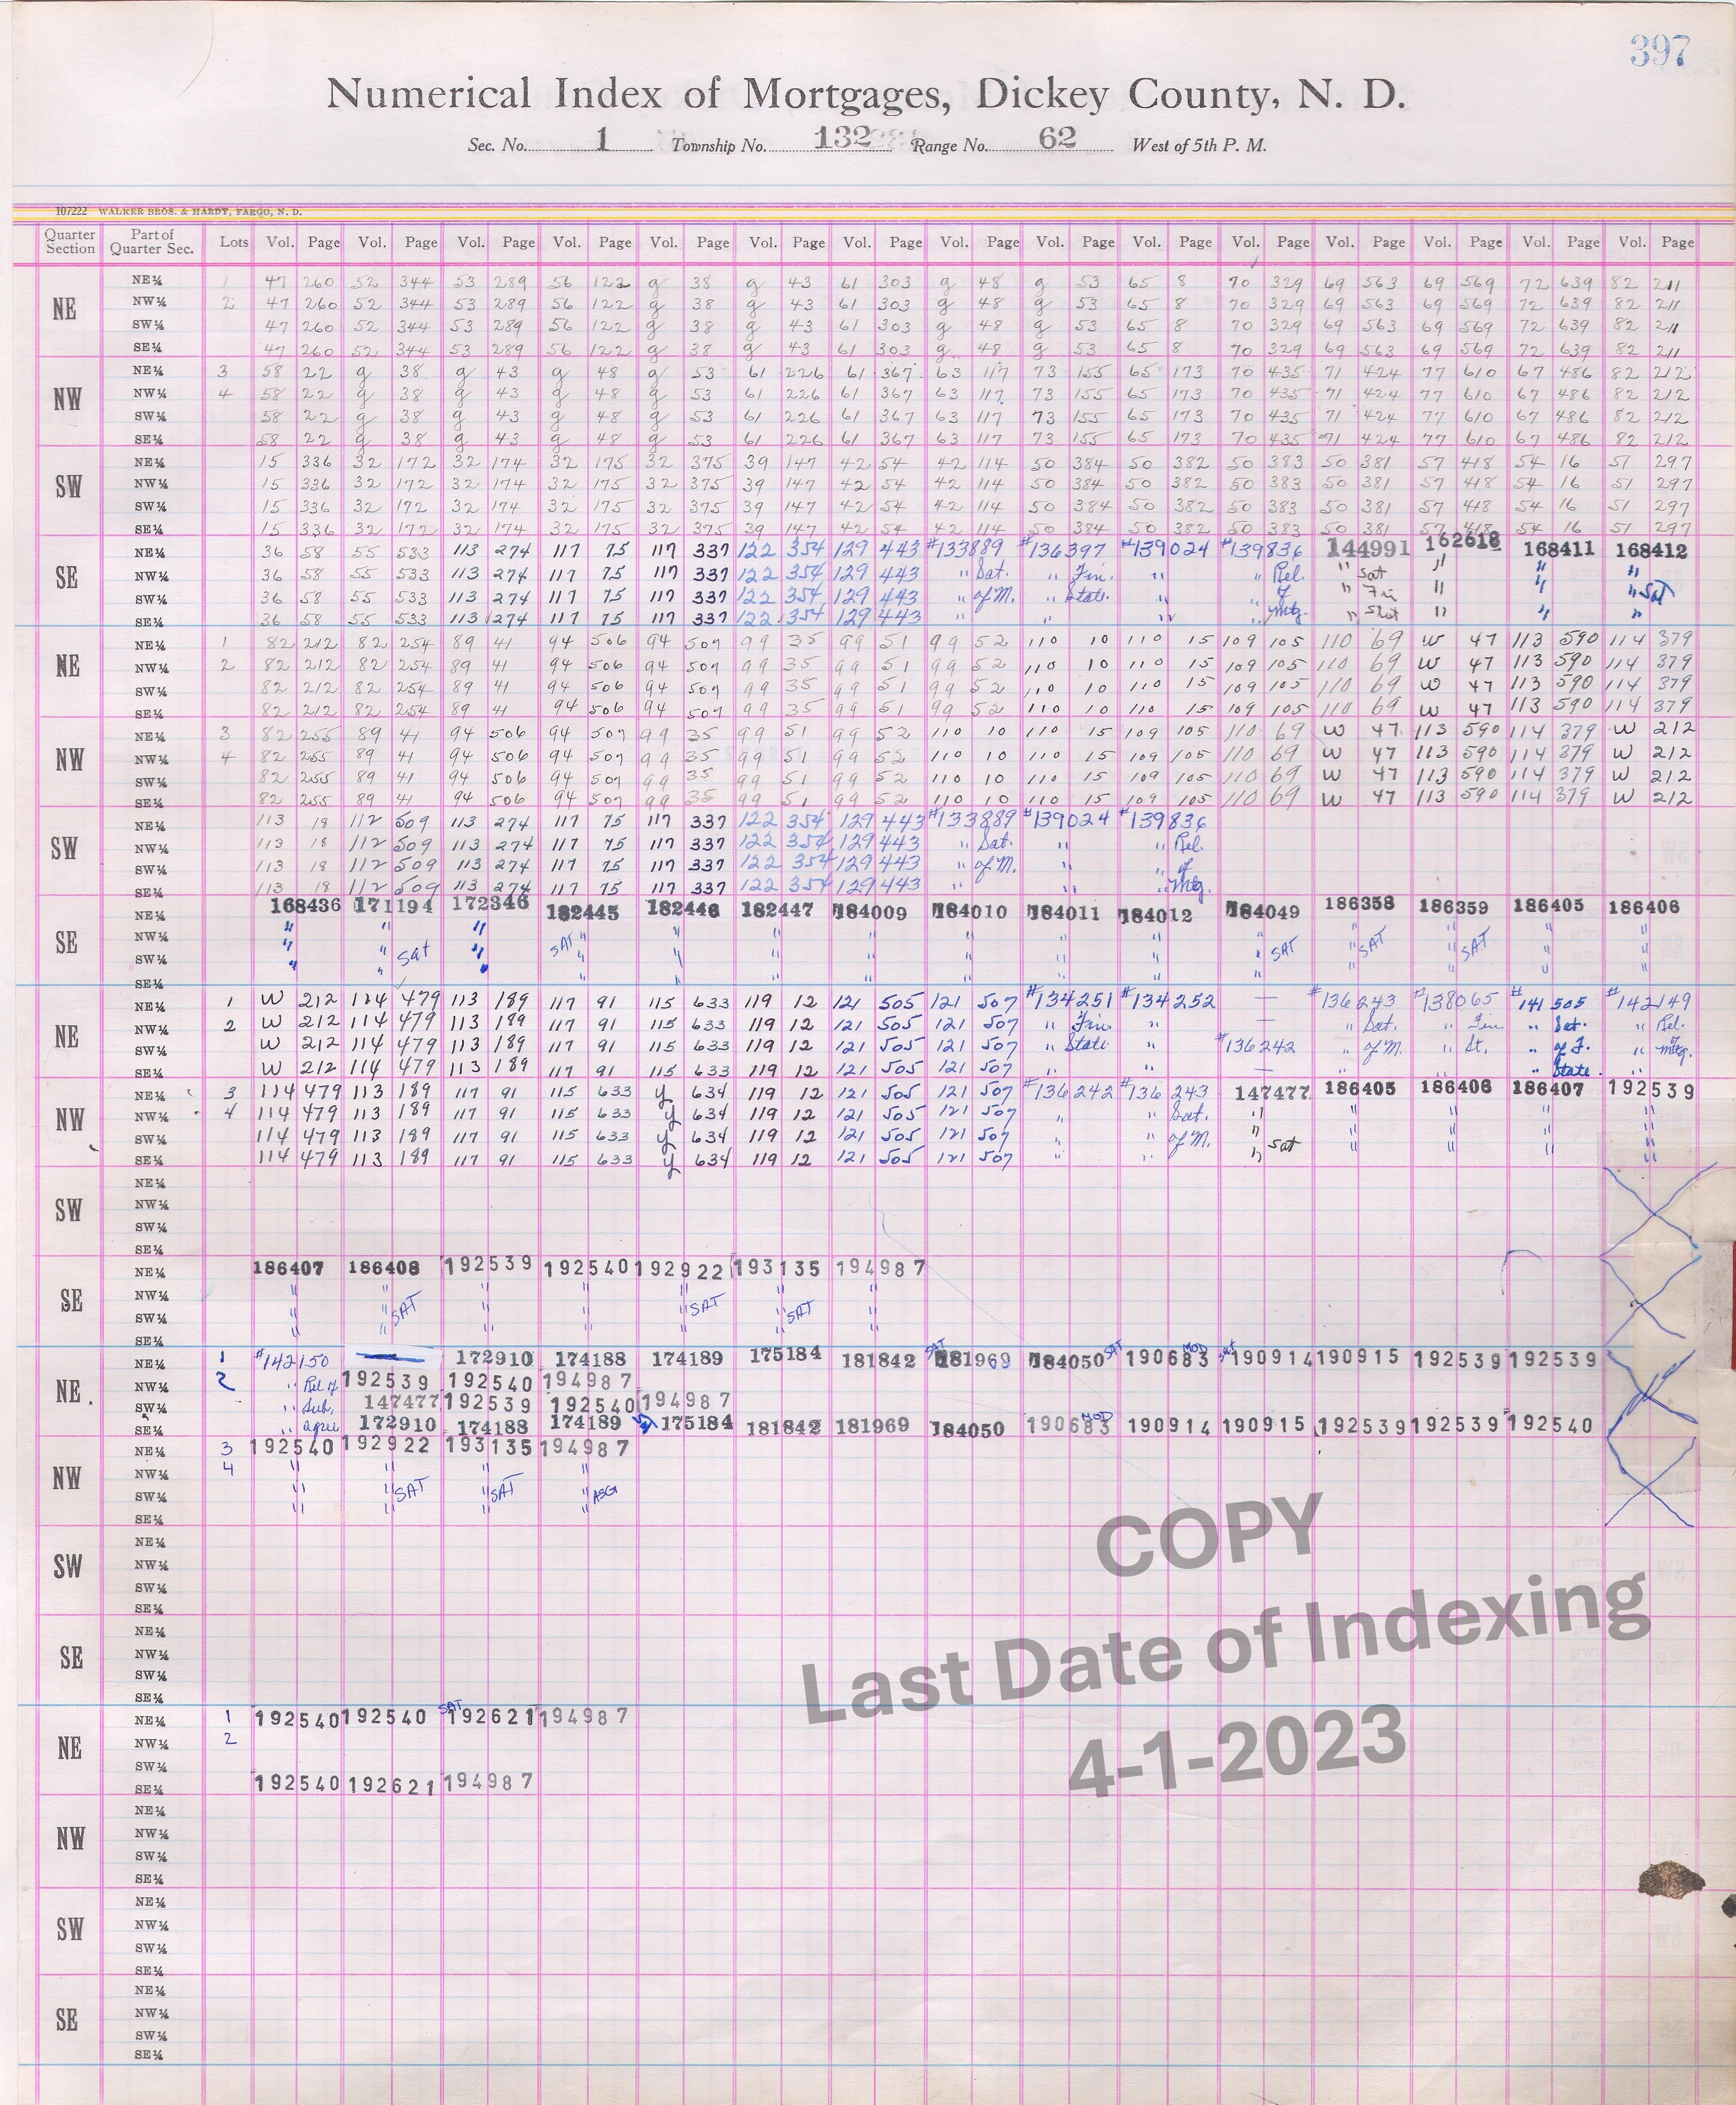 397
Numerical Index of Mortgages, Dickey County, N. D.
Sec. No. 1 Township No. 132 Range No. 62 West of 5th P. M.
107222 WALKER BROS. & HARDY, FARGO, N. D.
Quarter Section Part of Quarter Sec. Lots Vol. Page Vol. Page Vol. Page Vol. Page Vol. Page Vol. Page Vol. Page Vol. Page Vol. Page Vol. Page Vol. Page Vol. Page Vol. Page Vol. Page Vol. Page
NE
NE¼ 1 47 260 52 344 53 289 56 122 g 38 g 43 61 303 g 48 g 53 65 8 70 329 69 563 69 569 72 639 82 211
NW¼ 2 47 260 52 344 53 289 56 122 g 38 g 43 61 303 g 48 g 53 65 8 70 329 69 563 69 569 72 639 82 211
SW¼ 47 260 52 344 53 289 56 122 g 38 g 43 61 303 g 48 g 53 65 8 70 329 69 563 69 569 72 639 82 211
SE¼ 47 260 52 344 53 289 56 122 g 38 g 43 61 303 g 48 g 53 65 8 70 329 69 563 69 569 72 639 82 211
NW
NE¼ 3 58 22 g 38 g 43 g 48 g 53 61 226 61 367 63 117 73 155 65 173 70 435 71 424 77 610 67 486 82 212
NW¼ 4 58 22 g 38 g 43 g 48 g 53 61 226 61 367 63 117 73 155 65 173 70 435 71 424 77 610 67 486 82 212
SW¼ 58 22 g 38 g 43 g 48 g 53 61 226 61 367 63 117 73 155 65 173 70 435 71 424 77 610 67 486 82 212
SE¼ 58 22 g 38 g 43 g 48 g 53 61 226 61 367 63 117 73 155 65 173 70 435 71 424 77 610 67 486 82 212
SW
NE¼ 15 336 32 172 32 174 32 175 32 375 39 147 42 54 42 114 50 384 50 382 50 383 50 381 57 418 54 16 51 297
NW¼ 15 336 32 172 32 174 32 175 32 375 39 147 42 54 42 114 50 384 50 382 50 383 50 381 57 418 54 16 51 297
SW¼ 15 336 32 172 32 174 32 175 32 375 39 147 42 54 42 114 50 384 50 382 50 383 50 381 57 418 54 16 51 297
SE¼ 15 336 32 172 32 174 32 175 32 375 39 147 42 54 42 114 50 384 50 382 50 383 50 381 57 418 54 16 51 297
SE
NE¼ 36 58 55 533 113 274 117 75 117 337 122 354 129 443 #133889 #136397 #139024 #139836 144991 162618 168411 168412
NW¼ 36 58 55 533 113 274 117 75 117 337 122 354 129 443 " Sat. " Fin. " " Rel. " Sat " " "
SW¼ 36 58 55 533 113 274 117 75 117 337 122 354 129 443 " of M. " State. " " of " Fin " " " Sat
SE¼ 36 58 55 533 113 274 117 75 117 337 122 354 129 443 " " " " Mtg. " Stat " " "
NE
NE¼ 1 82 212 82 254 89 41 94 506 94 507 99 35 99 51 99 52 110 10 110 15 109 105 110 69 W 47 113 590 114 379
NW¼ 2 82 212 82 254 89 41 94 506 94 507 99 35 99 51 99 52 110 10 110 15 109 105 110 69 W 47 113 590 114 379
SW¼ 82 212 82 254 89 41 94 506 94 507 99 35 99 51 99 52 110 10 110 15 109 105 110 69 W 47 113 590 114 379
SE¼ 82 212 82 254 89 41 94 506 94 507 99 35 99 51 99 52 110 10 110 15 109 105 110 69 W 47 113 590 114 379
NW
NE¼ 3 82 255 89 41 94 506 94 507 99 35 99 51 99 52 110 10 110 15 109 105 110 69 W 47 113 590 114 379 W 212
NW¼ 4 82 255 89 41 94 506 94 507 99 35 99 51 99 52 110 10 110 15 109 105 110 69 W 47 113 590 114 379 W 212
SW¼ 82 255 89 41 94 506 94 507 99 35 99 51 99 52 110 10 110 15 109 105 110 69 W 47 113 590 114 379 W 212
SE¼ 82 255 89 41 94 506 94 507 99 35 99 51 99 52 110 10 110 15 109 105 110 69 W 47 113 590 114 379 W 212
SW
NE¼ 113 18 112 509 113 274 117 75 117 337 122 354 129 443 #133889 #139024 #139836
NW¼ 113 18 112 509 113 274 117 75 117 337 122 354 129 443 " Sat. " Rel.
SW¼ 113 18 112 509 113 274 117 75 117 337 122 354 129 443 " of M. " " of
SE¼ 113 18 112 509 113 274 117 75 117 337 122 354 129 443 " " " Mtg.
SE
NE¼ 168436 171194 172346 182445 182446 182447 184009 184010 184011 184012 184049 186358 186359 186405 186406
NW¼ " " " SAT " " " " " " " " SAT " SAT " SAT " "
SW¼ " " Sat " " " " " " " " " " " " "
SE¼ " " " " " " " " " " " " " " "
NE
NE¼ 1 W 212 114 479 113 189 117 91 115 633 119 12 121 505 121 507 #134251 #134252 — #136243 #138065 #141505 #142149
NW¼ 2 W 212 114 479 113 189 117 91 115 633 119 12 121 505 121 507 " Fin. " — " Sat. " Fin " Sat. " Rel.
SW¼ W 212 114 479 113 189 117 91 115 633 119 12 121 505 121 507 " State " #136242 " of M. " St. " of F. " Mtg.
SE¼ W 212 114 479 113 189 117 91 115 633 119 12 121 505 121 507 " " — " " " State. "
NW
NE¼ 3 114 479 113 189 117 91 115 633 y 634 119 12 121 505 121 507 #136242 #136243 147477 186405 186406 186407 192539
NW¼ 4 114 479 113 189 117 91 115 633 y 634 119 12 121 505 121 507 " " Sat. " " " " "
SW¼ 114 479 113 189 117 91 115 633 y 634 119 12 121 505 121 507 " " of M. " Sat " " " "
SE¼ 114 479 113 189 117 91 115 633 y 634 119 12 121 505 121 507 " " " " " " "
SW
NE¼
NW¼
SW¼
SE¼
SE
NE¼ 186407 186408 192539 192540 192922 193135 194987
NW¼ " " " " " " "
SW¼ " " SAT " " " SAT " SAT "
SE¼ " " " " " " "
NE
NE¼ 1 #142150 — 172910 174188 174189 175184 181842 SAT 181969 184050 SAT 190683 MOD Sat 190914 190915 192539 192539
NW¼ 2 " Rel of 192539 192540 194987
SW¼ " Sub. 147477 192539 192540 194987
SE¼ " agree 172910 174188 174189 175184 181842 181969 184050 190683 MOD 190914 190915 192539 192539 192540
NW
NE¼ 3 192540 192922 193135 194987
NW¼ 4 " " " "
SW¼ " " SAT " SAT " ASG
SE¼ " " " "
SW
NE¼
NW¼
SW¼
SE¼
SE
NE¼
NW¼
SW¼
SE¼
NE
NE¼ 1 192540 192540 SAT 192621 194987
NW¼ 2
SW¼
SE¼ 192540 192621 194987
NW
NE¼
NW¼
SW¼
SE¼
SW
NE¼
NW¼
SW¼
SE¼
SE
NE¼
NW¼
SW¼
SE¼
COPY
Last Date of Indexing
4-1-2023